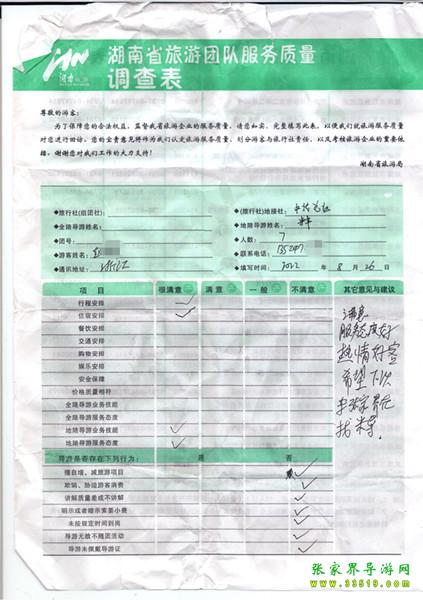 湖南省旅游团队服务质量
调查表
尊敬的游客:
为了保障您的合法权益,监督我省旅游企业的服务质量,请您如实、完整填写此表,以便我们就旅游服务质量
对您进行回访。您的宝贵意见将作为我们认定旅游服务质量、划分游客与旅行社责任、以及考核旅游企业的重要依
据。谢谢您对我们工作的大力支持!
湖南省旅游局
◆旅行社(组团社): ◆(旅行社)地接社:
◆全陪导游姓名: ◆地陪导游姓名:
◆团号: ◆人数: 7
◆游客姓名: ◆联系电话: 135
◆通讯地址: 浙江 ◆填写时间: 2012 年 8 月 26 日
项 目 很满意 满 意 一 般 不满意 其它意见与建议
行程安排
住宿安排
餐饮安排
交通安排
购物安排
娱乐安排
安全保障
价格质量相符
全陪导游业务技能
全陪导游服务态度
地陪导游业务技能
地陪导游服务态度
满意
服务态度好
热情好客
希望下次
导游是否存在下列行为: 是 否
擅自增、减旅游项目
欺骗、胁迫游客消费
讲解质量差或不讲解
明示或者暗示索要小费
未按规定时间到岗
导游无故不随团活动
导游未佩戴导游证
张家界导游网
www.33519.com